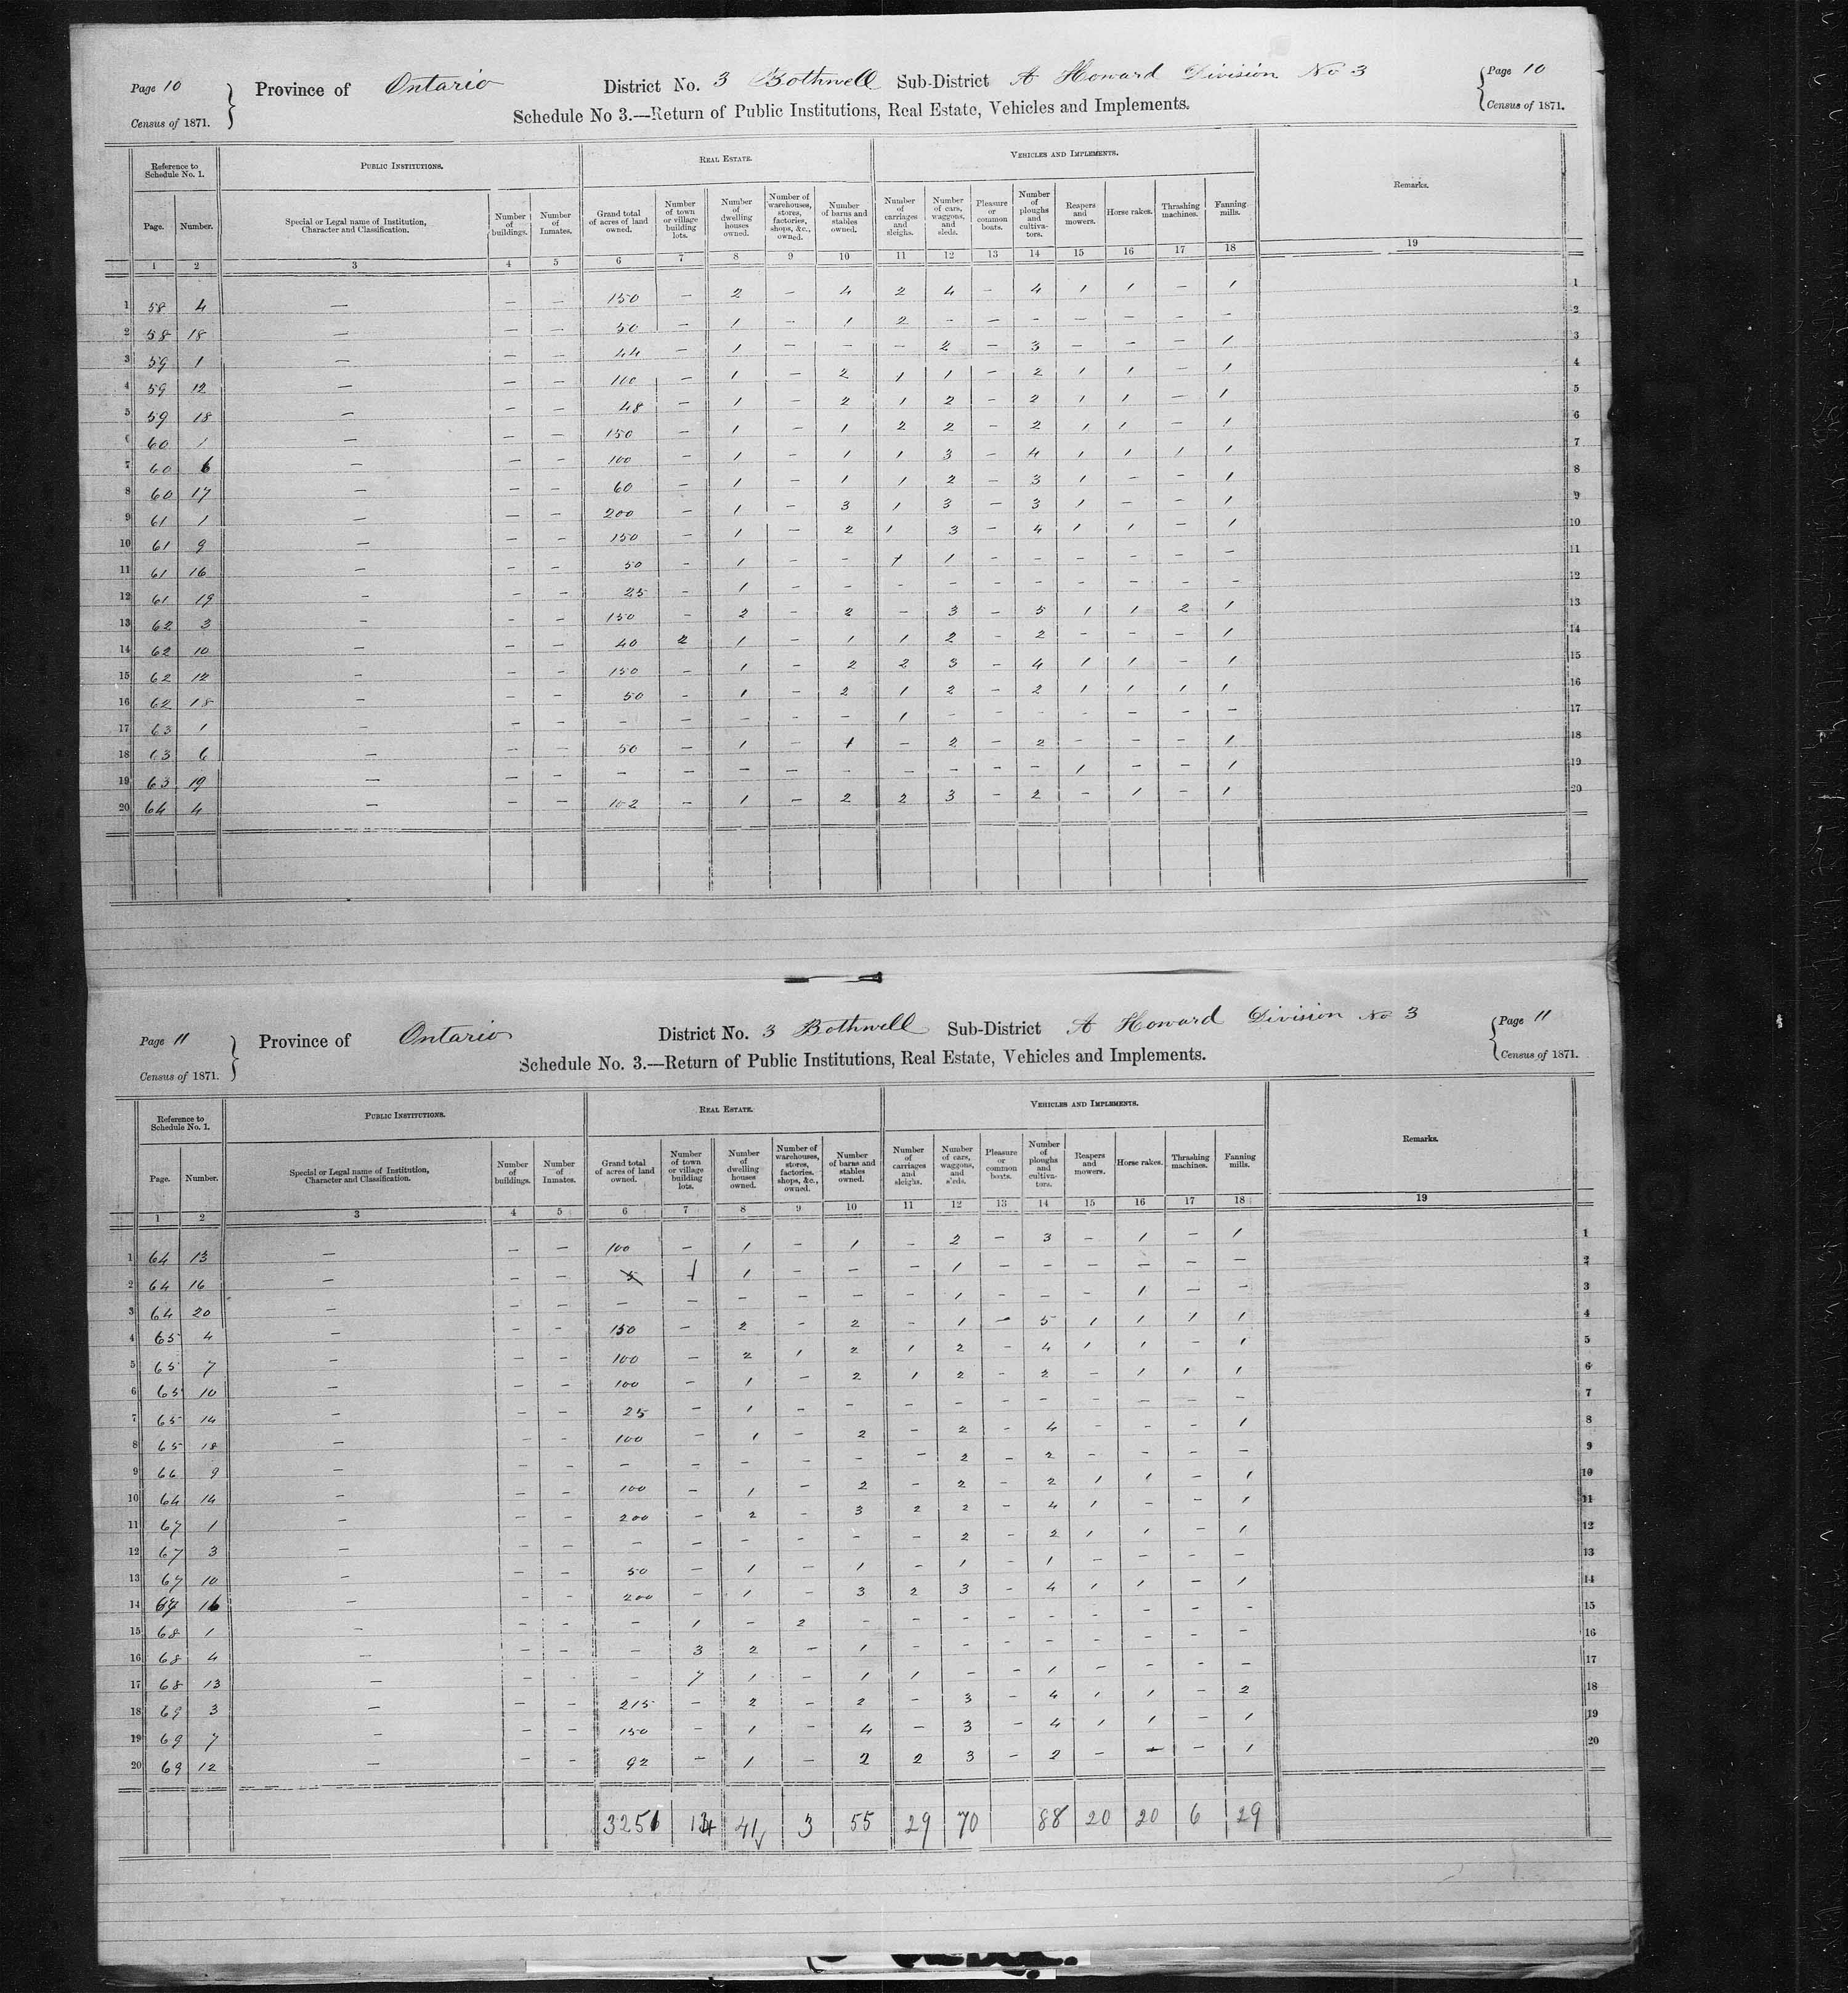 Page 10 Province of Ontario District No. 3 Bothwell Sub-District A Howard Division No 3 Page 10
Census of 1871. Schedule No 3.—Return of Public Institutions, Real Estate, Vehicles and Implements. Census of 1871.
Reference to Schedule No. 1. PUBLIC INSTITUTIONS. REAL ESTATE. VEHICLES AND IMPLEMENTS. Remarks.
Page. Number. Special or Legal name of Institution, Character and Classification. Number of buildings. Number of Inmates. Grand total of acres of land owned. Number of town or village building lots. Number of dwelling houses owned. Number of warehouses, stores, factories, shops, &c., owned. Number of barns and stables owned. Number of carriages and sleighs. Number of cars, waggons, and sleds. Pleasure or common boats. Number of ploughs and cultivators. Reapers and mowers. Horse rakes. Thrashing machines. Fanning mills.
1 2 3 4 5 6 7 8 9 10 11 12 13 14 15 16 17 18 19
1 58 4 — — — 150 — 2 — 4 2 4 — 4 1 1 — 1 1
2 58 18 — — — 50 — 1 — 1 2 — — — — — — — 2
3 59 1 — — — 44 — 1 — — — 2 — 3 — — — 1 3
4 59 12 — — — 100 — 1 — 2 1 1 — 2 1 1 — 1 4
5 59 18 — — — 48 — 1 — 2 1 2 — 2 1 1 — 1 5
6 60 1 — — — 150 — 1 — 1 2 2 — 2 1 1 — 1 6
7 60 6 — — — 100 — 1 — 1 1 3 — 4 1 1 1 1 7
8 60 17 — — — 60 — 1 — 1 1 2 — 3 1 — — 1 8
9 61 1 — — — 200 — 1 — 3 1 3 — 3 1 — — 1 9
10 61 9 — — — 150 — 1 — 2 1 3 — 4 1 1 — 1 10
11 61 16 — — — 50 — 1 — — 1 1 — — — — — — 11
12 61 19 — — — 25 — 1 — — — — — — — — — — 12
13 62 3 — — — 150 — 2 — 2 — 3 — 5 1 1 2 1 13
14 62 10 — — — 40 2 1 — 1 1 2 — 2 — — — 1 14
15 62 12 — — — 150 — 1 — 2 2 3 — 4 1 1 — 1 15
16 62 18 — — — 50 — 1 — 2 1 2 — 2 1 1 1 1 16
17 63 1 — — — — — — — — 1 — — — — — — — 17
18 63 6 — — — 50 — 1 — 1 — 2 — 2 — — — 1 18
19 63 19 — — — — — — — — — — — — 1 — — 1 19
20 64 4 — — — 102 — 1 — 2 2 3 — 2 — 1 — 1 20
Page 11 Province of Ontario District No. 3 Bothwell Sub-District A Howard Division No 3 Page 11
Census of 1871. Schedule No. 3.—Return of Public Institutions, Real Estate, Vehicles and Implements. Census of 1871.
Reference to Schedule No. 1. PUBLIC INSTITUTIONS. REAL ESTATE. VEHICLES AND IMPLEMENTS. Remarks.
Page. Number. Special or Legal name of Institution, Character and Classification. Number of buildings. Number of Inmates. Grand total of acres of land owned. Number of town or village building lots. Number of dwelling houses owned. Number of warehouses, stores, factories, shops, &c., owned. Number of barns and stables owned. Number of carriages and sleighs. Number of cars, waggons, and sleds. Pleasure or common boats. Number of ploughs and cultivators. Reapers and mowers. Horse rakes. Thrashing machines. Fanning mills.
1 2 3 4 5 6 7 8 9 10 11 12 13 14 15 16 17 18 19
1 64 13 — — — 100 — 1 — 1 — 2 — 3 — 1 — 1 1
2 64 16 — — — 5 1 1 — — — 1 — — — — — — 2
3 64 20 — — — — — — — — — 1 — — — 1 — — 3
4 65 4 — — — 150 — 2 — 2 — 1 — 5 1 1 1 1 4
5 65 7 — — — 100 — 2 1 2 1 2 — 4 1 1 — 1 5
6 65 10 — — — 100 — 1 — 2 1 2 — 2 — 1 1 1 6
7 65 14 — — — 25 — 1 — — — — — — — — — — 7
8 65 18 — — — 100 — 1 — 2 — 2 — 4 — — — 1 8
9 66 9 — — — — — — — — — 2 — 2 — — — — 9
10 64 14 — — — 100 — 1 — 2 — 2 — 2 1 1 — 1 10
11 67 1 — — — 200 — 2 — 3 2 2 — 4 1 — — 1 11
12 67 3 — — — — — — — — — 2 — 2 1 1 — 1 12
13 67 10 — — — 50 — 1 — 1 — 1 — 1 — — — — 13
14 67 16 — — — 200 — 1 — 3 2 3 — 4 1 1 — 1 14
15 68 1 — — — — 1 — 2 — — — — — — — — — 15
16 68 4 — — — — 3 2 — 1 — — — — — — — — 16
17 68 13 — — — — 7 1 — 1 1 — — 1 — — — — 17
18 69 3 — — — 215 — 2 — 2 — 3 — 4 1 1 — 2 18
19 69 7 — — — 150 — 1 — 4 — 3 — 4 1 1 — 1 19
20 69 12 — — — 92 — 1 — 2 2 3 — 2 — — — 1 20
3251 14 41 3 55 29 70 88 20 20 6 29